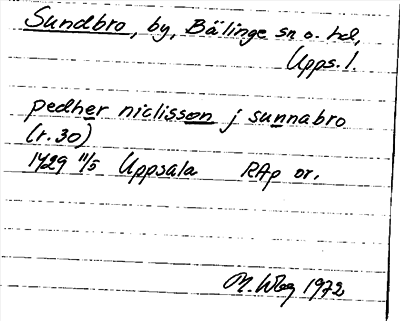 Sundbro, by, Bälinge sn o. hd,
Upps. l.
pedher niclisson j sunnabro
(r. 30)
1429 11/5 Uppsala RAp or.
M. Wbg 1972